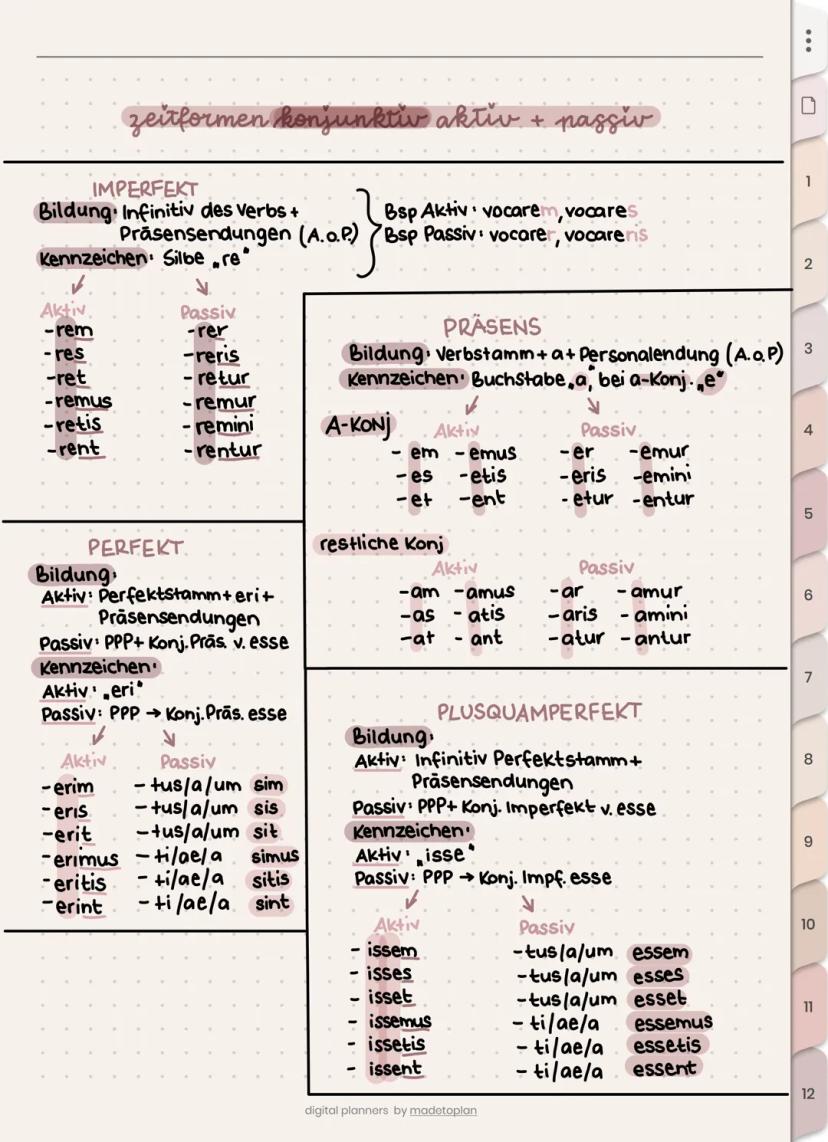 zeitformen konjunktiv aktiv + passiv
IMPERFEKT
Bildung: Infinitiv des Verbs +
Präsensendungen (A.o.P.)
Kennzeichen: Silbe „re"
Bsp Aktiv: vocarem, vocares
Bsp Passiv: vocarer, vocareris
Aktiv Passiv
-rem -rer
-res -reris
-ret -retur
-remus -remur
-retis -remini
-rent -rentur
PRÄSENS
Bildung: Verbstamm + a + Personalendung (A.o.P)
Kennzeichen: Buchstabe „a", bei a-Konj. „e"
A-KONJ Aktiv Passiv
-em -emus -er -emur
-es -etis -eris -emini
-et -ent -etur -entur
restliche Konj
Aktiv Passiv
-am -amus -ar -amur
-as -atis -aris -amini
-at -ant -atur -antur
PERFEKT
Bildung:
Aktiv: Perfektstamm + eri +
Präsensendungen
Passiv: PPP + Konj. Präs. v. esse
Kennzeichen:
Aktiv: „eri"
Passiv: PPP → Konj. Präs. esse
Aktiv Passiv
-erim -tus/a/um sim
-eris -tus/a/um sis
-erit -tus/a/um sit
-erimus -ti/ae/a simus
-eritis -ti/ae/a sitis
-erint -ti/ae/a sint
PLUSQUAMPERFEKT
Bildung:
Aktiv: Infinitiv Perfektstamm +
Präsensendungen
Passiv: PPP + Konj. Imperfekt v. esse
Kennzeichen:
Aktiv: „isse"
Passiv: PPP → Konj. Impf. esse
Aktiv Passiv
-issem -tus/a/um essem
-isses -tus/a/um esses
-isset -tus/a/um esset
-issemus -ti/ae/a essemus
-issetis -ti/ae/a essetis
-issent -ti/ae/a essent
digital planners by madetoplan
1
2
3
4
5
6
7
8
9
10
11
12